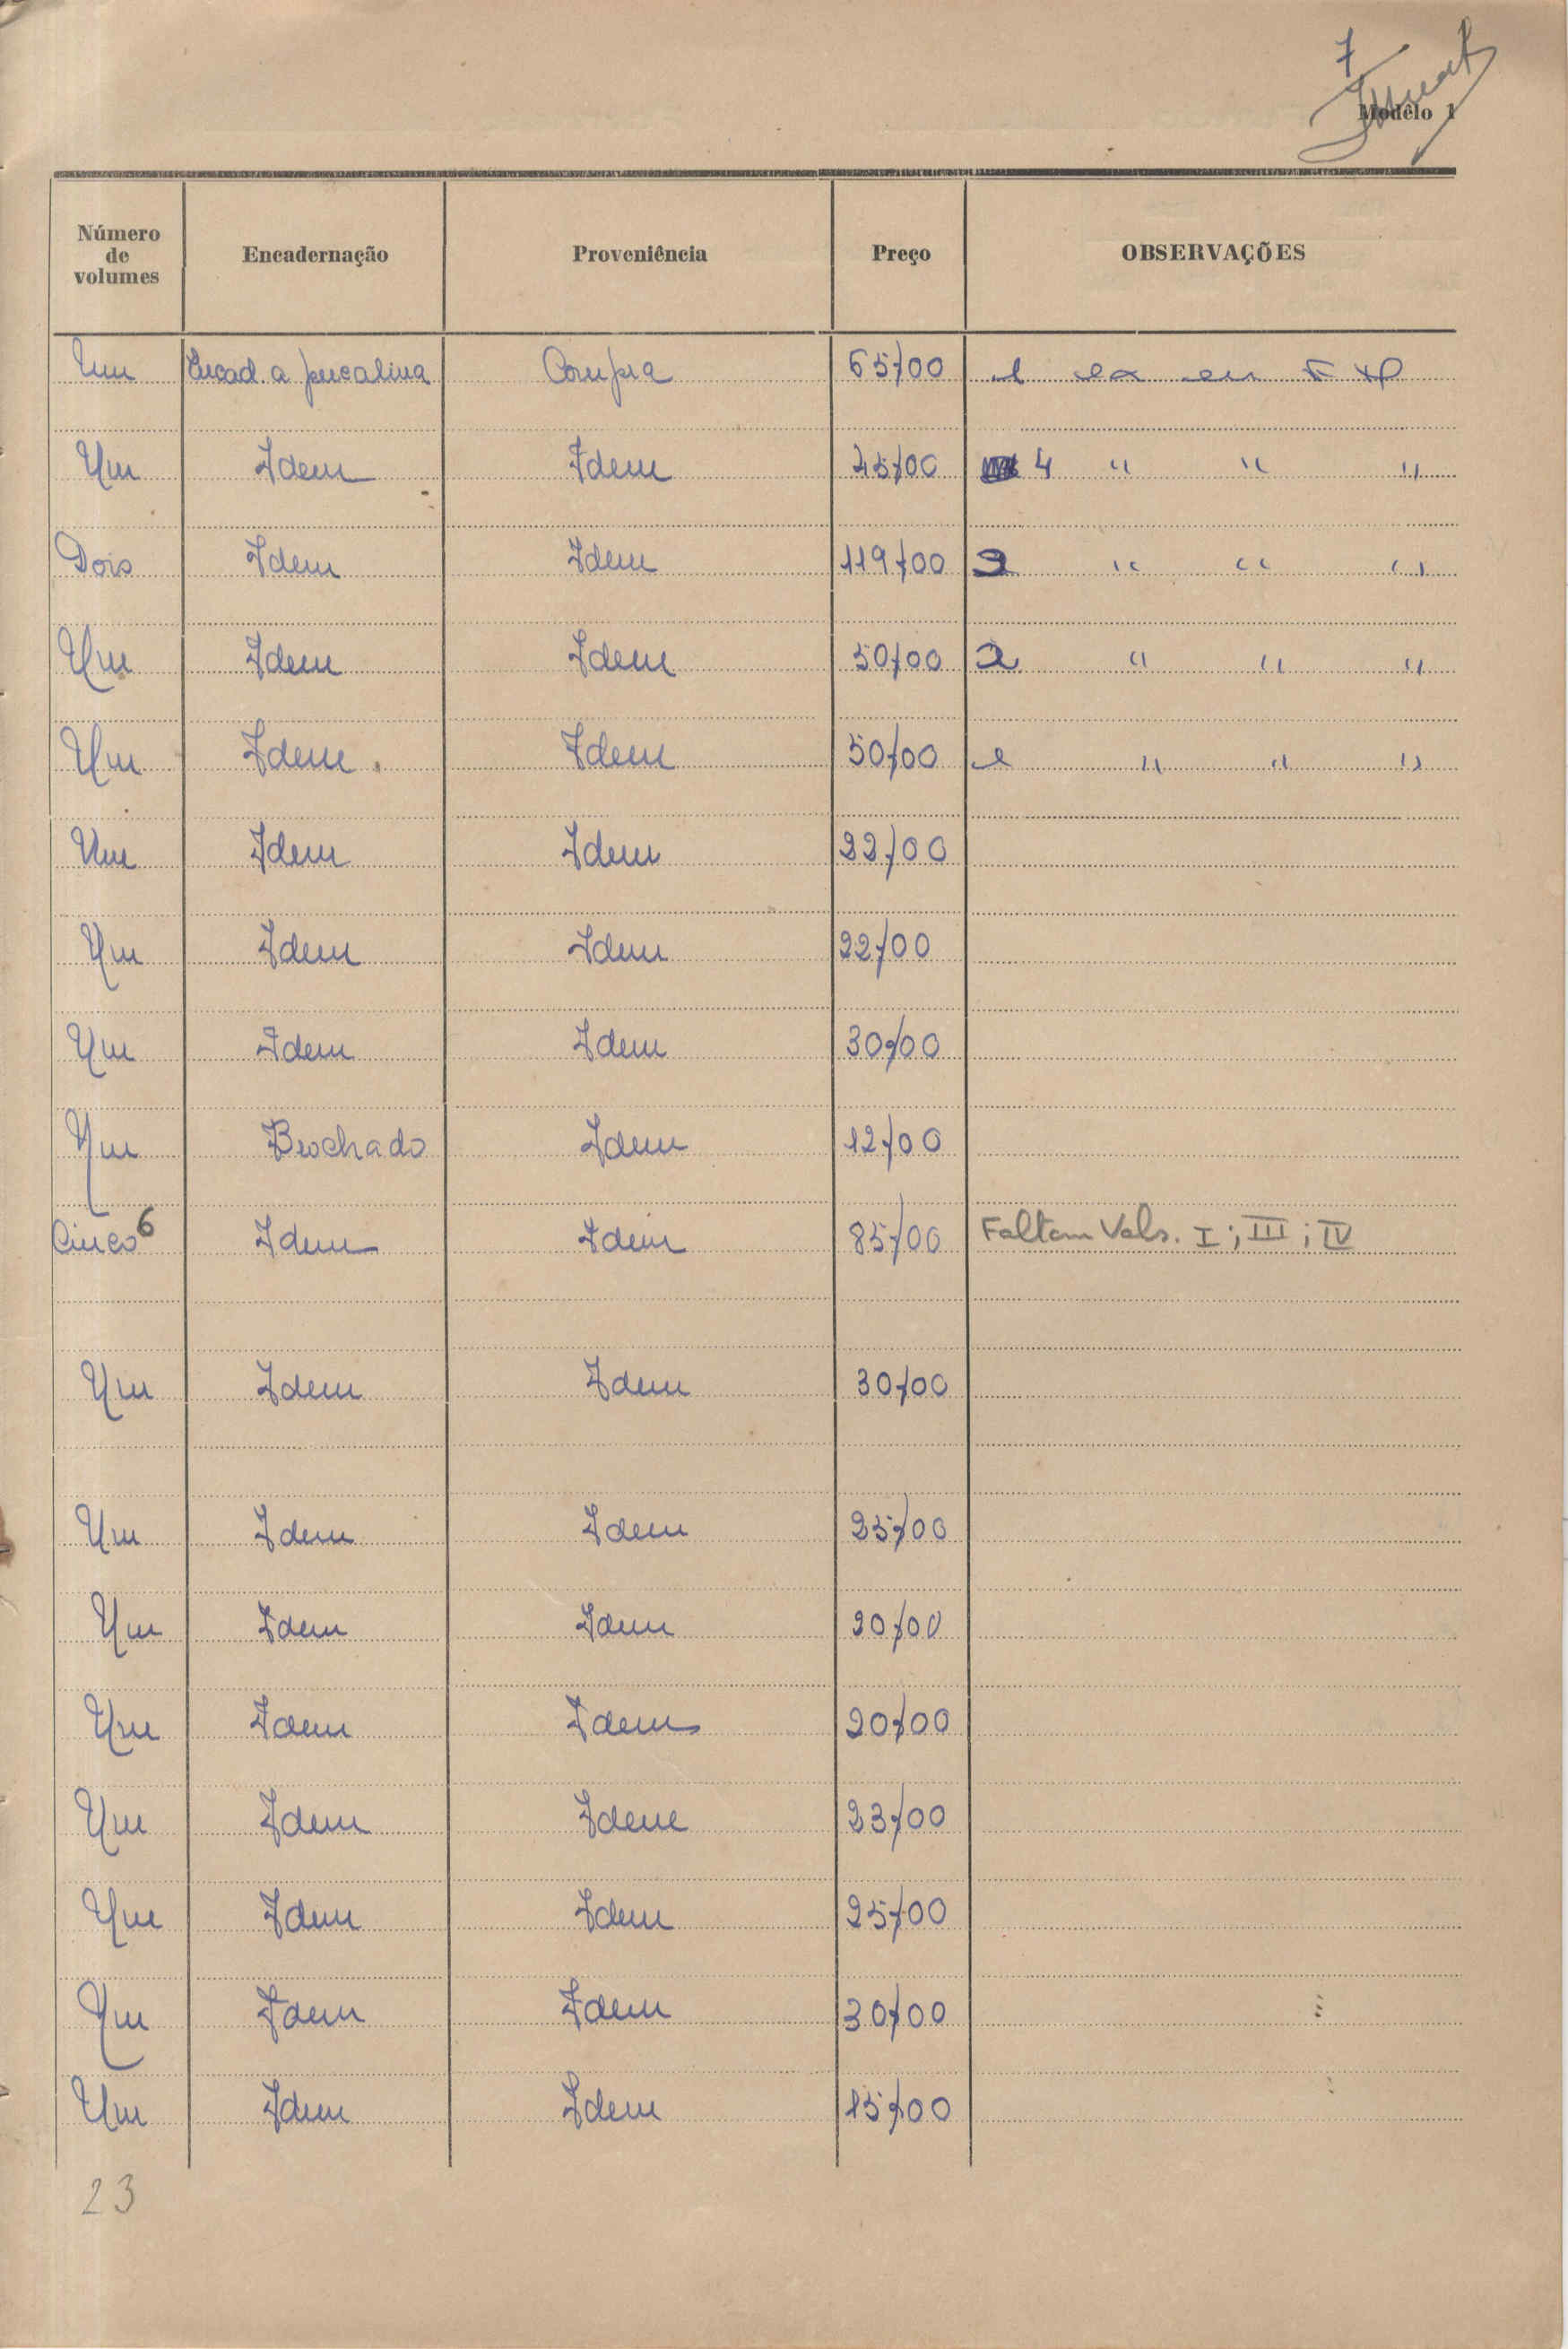 7
Modêlo 1
Número de volumes Encadernação Proveniência Preço OBSERVAÇÕES
Um Encad. a percalina Compra 65$00 1 ex em
Um Idem Idem 25$00 4 " " "
Dois Idem Idem 119$00 2 " " "
Um Idem Idem 50$00 2 " " "
Um Idem Idem 50$00 1 " " "
Um Idem Idem 22$00
Um Idem Idem 22$00
Um Idem Idem 30$00
Um Brochado Idem 12$00
Cinco 6 Idem Idem 85$00 Faltam Vols. I ; III ; IV
Um Idem Idem 30$00
Um Idem Idem 25$00
Um Idem Idem 20$00
Um Idem Idem 20$00
Um Idem Idem 23$00
Um Idem Idem 25$00
Um Idem Idem 30$00
Um Idem Idem 15$00
23